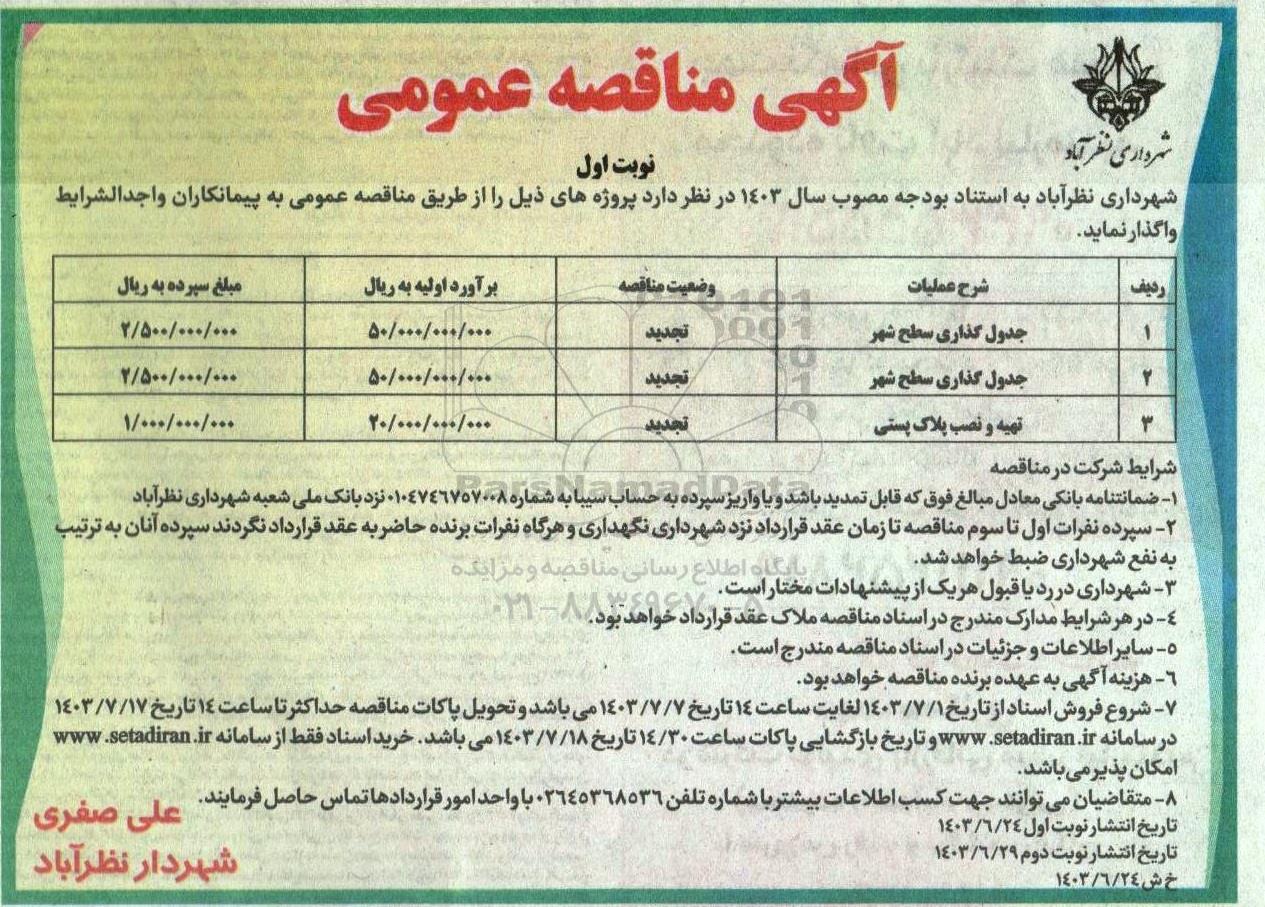 شهرداری نظرآباد
آگهی مناقصه عمومی
نوبت اول
شهرداری نظرآباد به استناد بودجه مصوب سال ۱۴۰۳ در نظر دارد پروژه های ذیل را از طریق مناقصه عمومی به پیمانکاران واجدالشرایط
واگذار نماید.
ردیف شرح عملیات وضعیت مناقصه برآورد اولیه به ریال مبلغ سپرده به ریال
۱ جدول گذاری سطح شهر تجدید ۵۰/۰۰۰/۰۰۰/۰۰۰ ۲/۵۰۰/۰۰۰/۰۰۰
۲ جدول گذاری سطح شهر تجدید ۵۰/۰۰۰/۰۰۰/۰۰۰ ۲/۵۰۰/۰۰۰/۰۰۰
۳ تهیه و نصب پلاک پستی تجدید ۲۰/۰۰۰/۰۰۰/۰۰۰ ۱/۰۰۰/۰۰۰/۰۰۰
شرایط شرکت در مناقصه
۱- ضمانتنامه بانکی معادل مبالغ فوق که قابل تمدید باشد و یا واریز سپرده به حساب سیبا به شماره ۰۱۰۴۷۴۶۷۵۷۰۰۸ نزد بانک ملی شعبه شهرداری نظرآباد
۲- سپرده نفرات اول تا سوم مناقصه تا زمان عقد قرارداد نزد شهرداری نگهداری و هرگاه نفرات برنده حاضر به عقد قرارداد نگردند سپرده آنان به ترتیب
به نفع شهرداری ضبط خواهد شد.
۳- شهرداری در رد یا قبول هر یک از پیشنهادات مختار است.
۴- در هر شرایط مدارک مندرج در اسناد مناقصه ملاک عقد قرارداد خواهد بود.
۵- سایر اطلاعات و جزئیات در اسناد مناقصه مندرج است.
۶- هزینه آگهی به عهده برنده مناقصه خواهد بود.
۷- شروع فروش اسناد از تاریخ ۱۴۰۳/۷/۱ لغایت ساعت ۱۴ تاریخ ۱۴۰۳/۷/۷ می باشد و تحویل پاکات مناقصه حداکثر تا ساعت ۱۴ تاریخ ۱۴۰۳/۷/۱۷
در سامانه www.setadiran.ir و تاریخ بازگشایی پاکات ساعت ۱۴/۳۰ تاریخ ۱۴۰۳/۷/۱۸ می باشد. خرید اسناد فقط از سامانه www.setadiran.ir
امکان پذیر می باشد.
۸- متقاضیان می توانند جهت کسب اطلاعات بیشتر با شماره تلفن ۰۲۶۴۵۳۶۸۵۳۶ با واحد امور قراردادها تماس حاصل فرمایند.
تاریخ انتشار نوبت اول ۱۴۰۳/۶/۲۴
تاریخ انتشار نوبت دوم ۱۴۰۳/۶/۲۹
خ ش ۱۴۰۳/۶/۲۴
علی صفری
شهردار نظرآباد
ParsNamadData
پایگاه اطلاع رسانی مناقصه و مزایده
۰۲۱-۸۸۳۴۹۶۷۰-۵